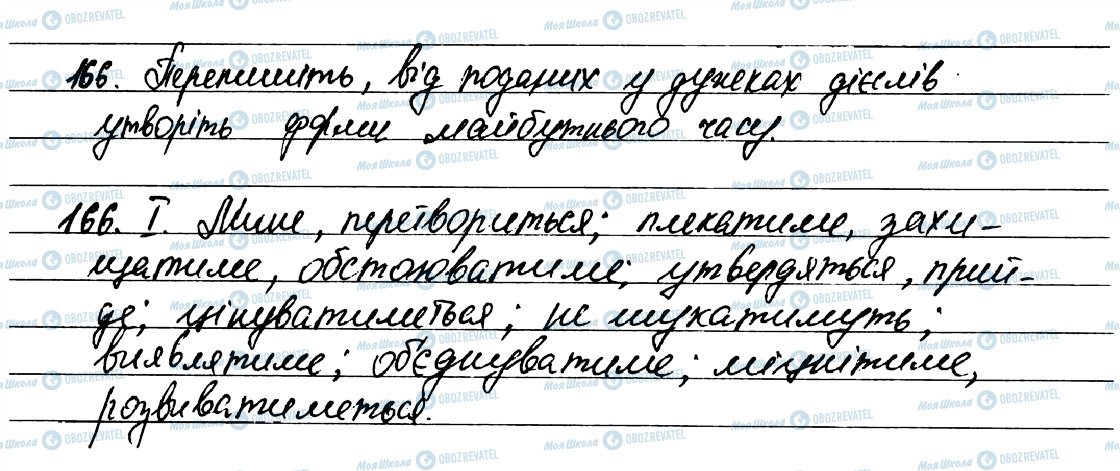 166. Перепишіть, від поданих у дужках дієслів
утворіть форми майбутнього часу.
166. I. Мине, перетвориться; плекатиме, захи-
щатиме, обстоюватиме; утвердяться, прий-
де; цінуватиметься; не шукатимуть;
виявлятиме; об'єднуватиме; міцнітиме,
розвиватиметься.